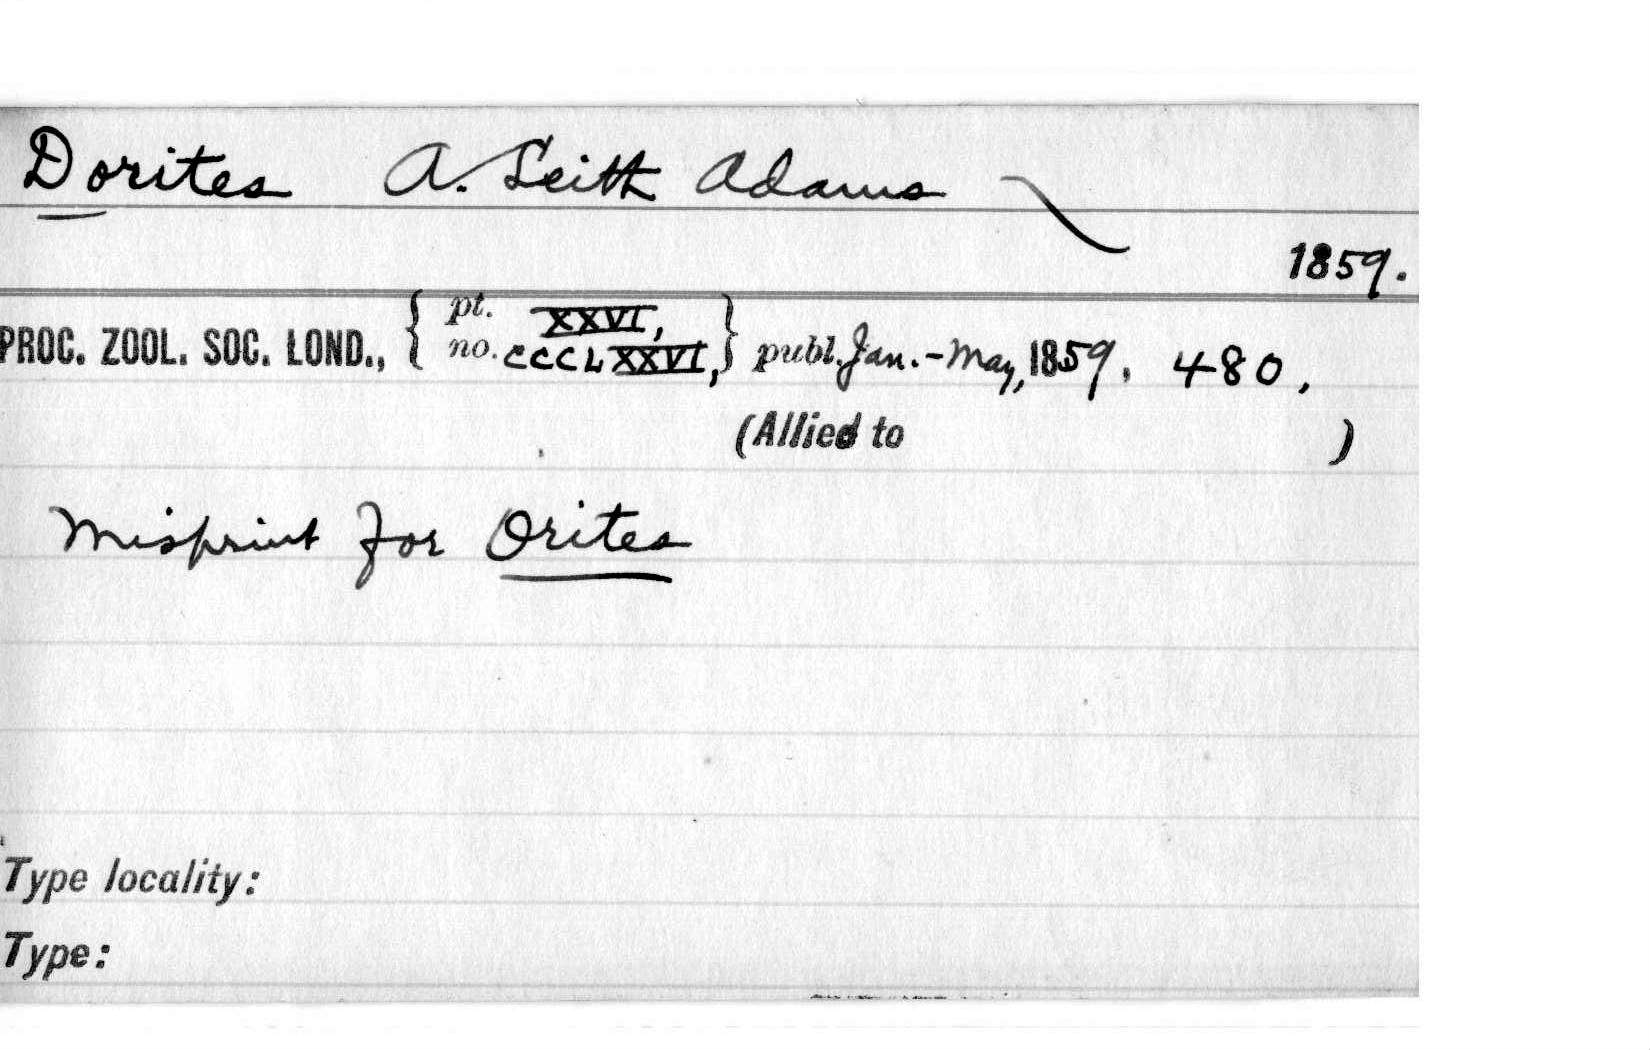 Dorites A. Leith Adams
1859.
PROC. ZOOL. SOC. LOND., { pt. XXVI, no. CCCLXXVI, } publ. Jan.-May, 1859, 480,
(Allied to )
Misprint for Orites
Type locality:
Type: